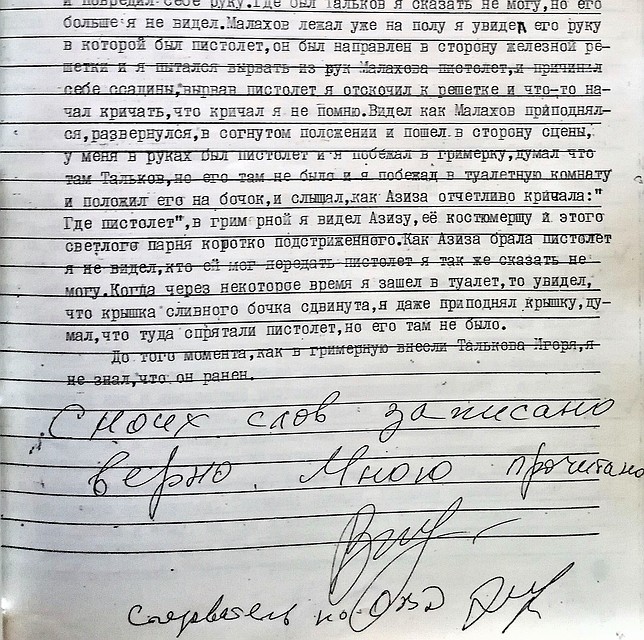 и повредил себе руку.Где был Тальков я сказать не могу,но его
больше я не видел.Малахов лежал уже на полу я увидел его руку
в которой был пистолет,он был направлен в сторону железной ре-
шетки и я пытался вырвать из рук Малахова пистолет,и причинил
себе ссадины,вырвав пистолет я отскочил к решетке и что-то на-
чал кричать,что кричал я не помню.Видел как Малахов приподнял-
ся,развернулся,в согнутом положении и пошел в сторону сцены,
у меня в руках был пистолет и я побежал в гримерку,думал что
там Тальков,но его там не было и я побежал в туалетную комнату
и положил его на бочок,и слышал,как Азиза отчетливо кричала:"
Где пистолет",в грим рной я видел Азизу,её костюмершу и этого
светлого парня коротко подстриженного.Как Азиза брала пистолет
я не видел,кто ей мог передать пистолет я так же сказать не
могу.Когда через некоторое время я зашел в туалет,то увидел,
что крышка сливного бочка сдвинута,я даже приподнял крышку,ду-
мал,что туда спрятали пистолет,но его там не было.
До того момента,как в гримерную внесли Талькова Игоря,я
не знал,что он ранен.
С моих слов записано
верно. Мною прочитано
Следователь по ОВД